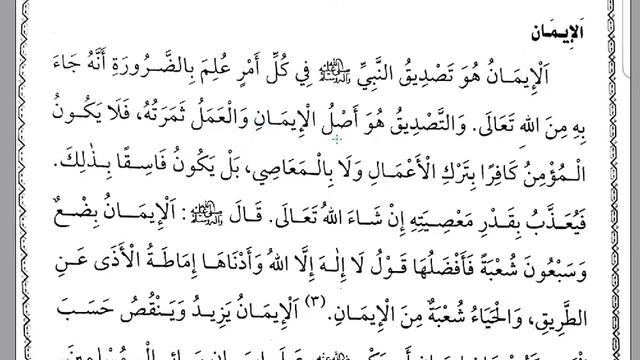 اَلْإِيمَان
اَلْإِيمَانُ هُوَ تَصْدِيقُ النَّبِيِّ ﷺ فِي كُلِّ أَمْرٍ عُلِمَ بِالضَّرُورَةِ أَنَّهُ جَاءَ
بِهِ مِنَ اللهِ تَعَالَى. وَالتَّصْدِيقُ هُوَ أَصْلُ الْإِيمَانِ وَالْعَمَلُ ثَمَرَتُهُ، فَلَا يَكُونُ
الْمُؤْمِنُ كَافِرًا بِتَرْكِ الْأَعْمَالِ وَلَا بِالْمَعَاصِي، بَلْ يَكُونُ فَاسِقًا بِذٰلِكَ.
فَيُعَذَّبُ بِقَدْرِ مَعْصِيَتِهِ إِنْ شَاءَ اللهُ تَعَالَى. قَالَ ﷺ: اَلْإِيمَانُ بِضْعٌ
وَسَبْعُونَ شُعْبَةً فَأَفْضَلُهَا قَوْلُ لَا إِلٰهَ إِلَّا اللهُ وَأَدْنَاهَا إِمَاطَةُ الْأَذَى عَنِ
الطَّرِيقِ، وَالْحَيَاءُ شُعْبَةٌ مِنَ الْإِيمَانِ.(٣) اَلْإِيمَانُ يَزِيدُ وَيَنْقُصُ حَسَبَ